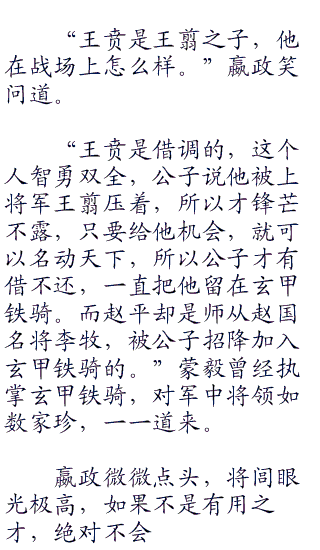 “王贲是王翦之子，他
在战场上怎么样。”嬴政笑
问道。
“王贲是借调的，这个
人智勇双全，公子说他被上
将军王翦压着，所以才锋芒
不露，只要给他机会，就可
以名动天下，所以公子才有
借不还，一直把他留在玄甲
铁骑。而赵平却是师从赵国
名将李牧，被公子招降加入
玄甲铁骑的。”蒙毅曾经执
掌玄甲铁骑，对军中将领如
数家珍，一一道来。
嬴政微微点头，将闾眼
光极高，如果不是有用之
才，绝对不会